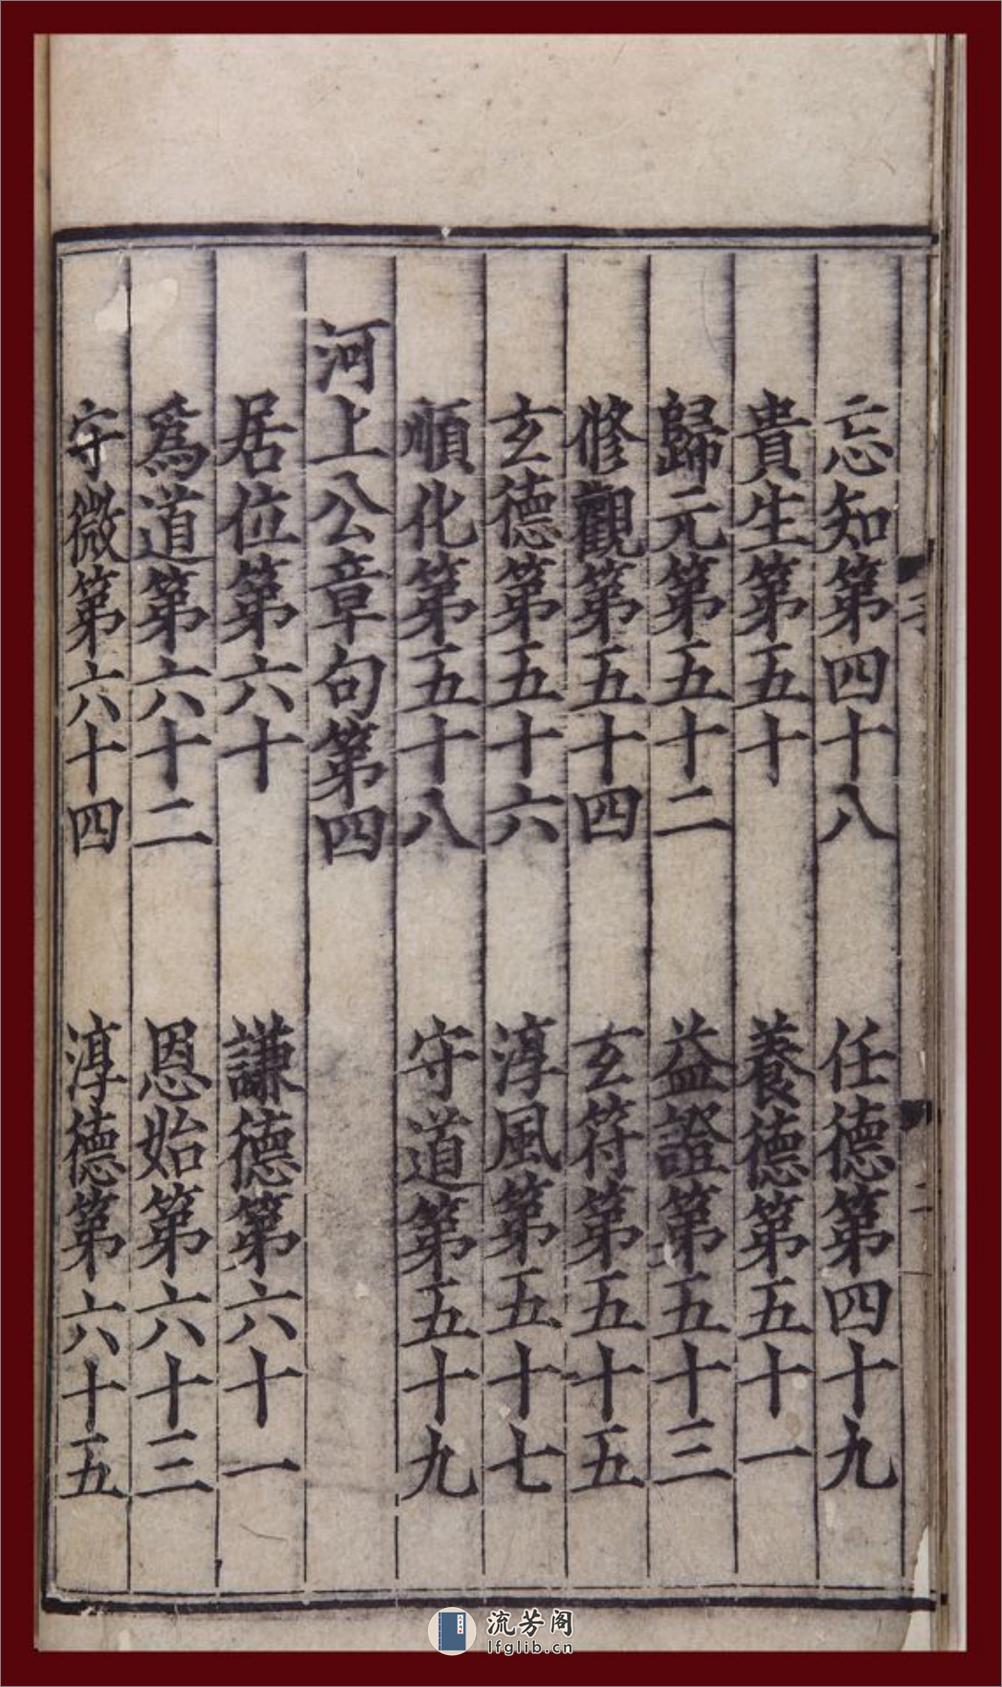 忘知第四十八　任德第四十九
貴生第五十　養德第五十一
歸元第五十二　益證第五十三
修觀第五十四　玄符第五十五
玄德第五十六　淳風第五十七
順化第五十八　守道第五十九
河上公章句第四
居位第六十　謙德第六十一
爲道第六十二　恩始第六十三
守微第六十四　淳德第六十五
流芳阁
lfglib.cn